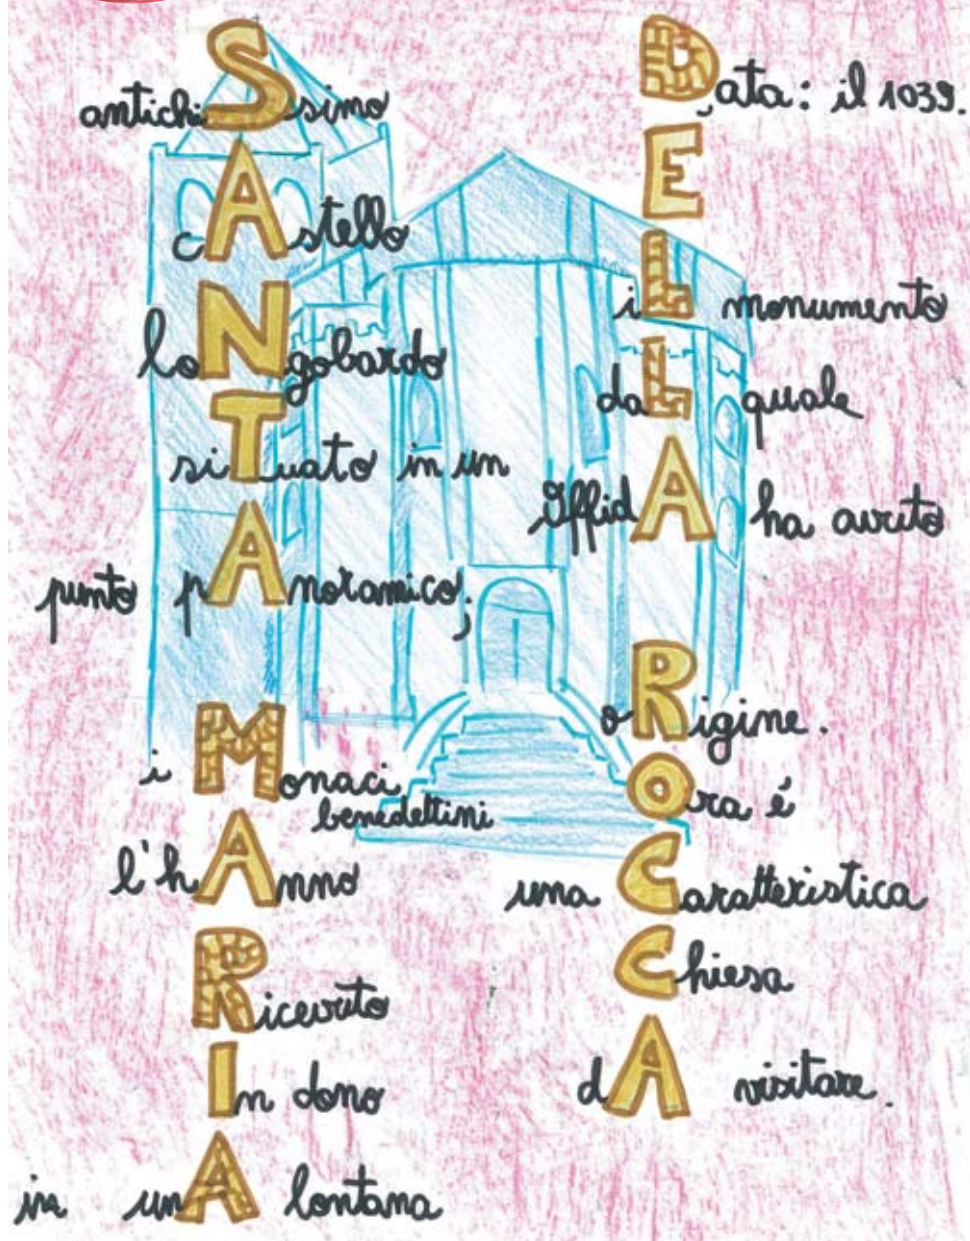 antichiSsimo
cAstello
loNgobardo
siTuato in un
punto pAnoramico;
i Monaci
benedettini
l'hAnno
Ricevuto
In dono
in unA lontana
Data: il 1039.
E
iL monumento
daL quale
OffidA ha avuto
oRigine.
Ora é
una Caratteristica
Chiesa
dA visitare.